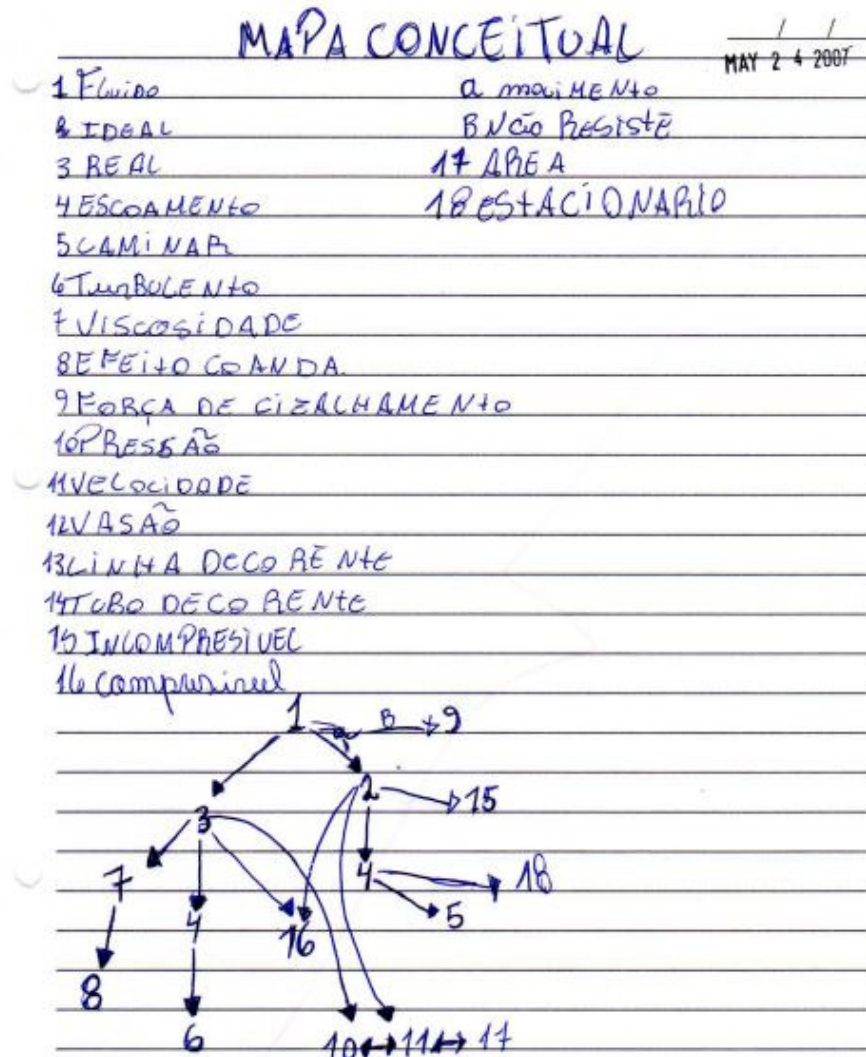 MAPA CONCEITUAL
MAY 24 2007
1 Fluido
2 IDEAL
3 REAL
4 ESCOAMENto
5 LAMINAR
6 TurBULENto
7 VISCOSiDADE
8 EFEito COANDA
9 FORÇA DE CIZALHAMENto
10 PRESSÃO
11 VELOCIDADE
12 VASÃO
13 LINHA DECORENtE
14 TUBO DECORENtE
15 INCOMPRESIVEL
16 compresivel
a moviMENto
B Não RESIStE
17 AREA
18 EStACIONARIO
1 a B 9
2 15
3
7 4 16 4 18
5
8 6 10 11 17